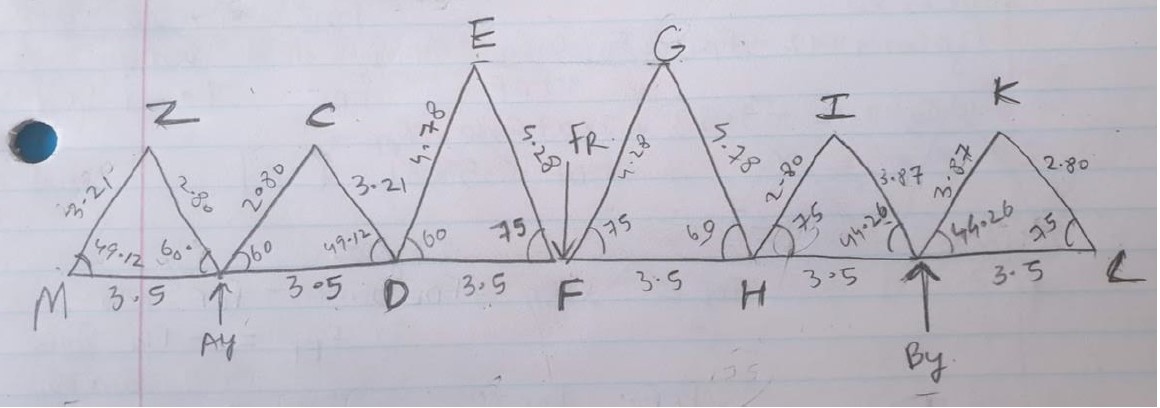 E
G
Z
C
I
K
3.21
2.80
2.80
3.21
4.78
5.28
FR
4.28
5.78
2.80
3.87
3.87
2.80
49.12
60.
60
49.12
60
75
75
69
75
44.26
44.26
75
M
3.5
3.5
D
3.5
F
3.5
H
3.5
3.5
L
Ay
By.